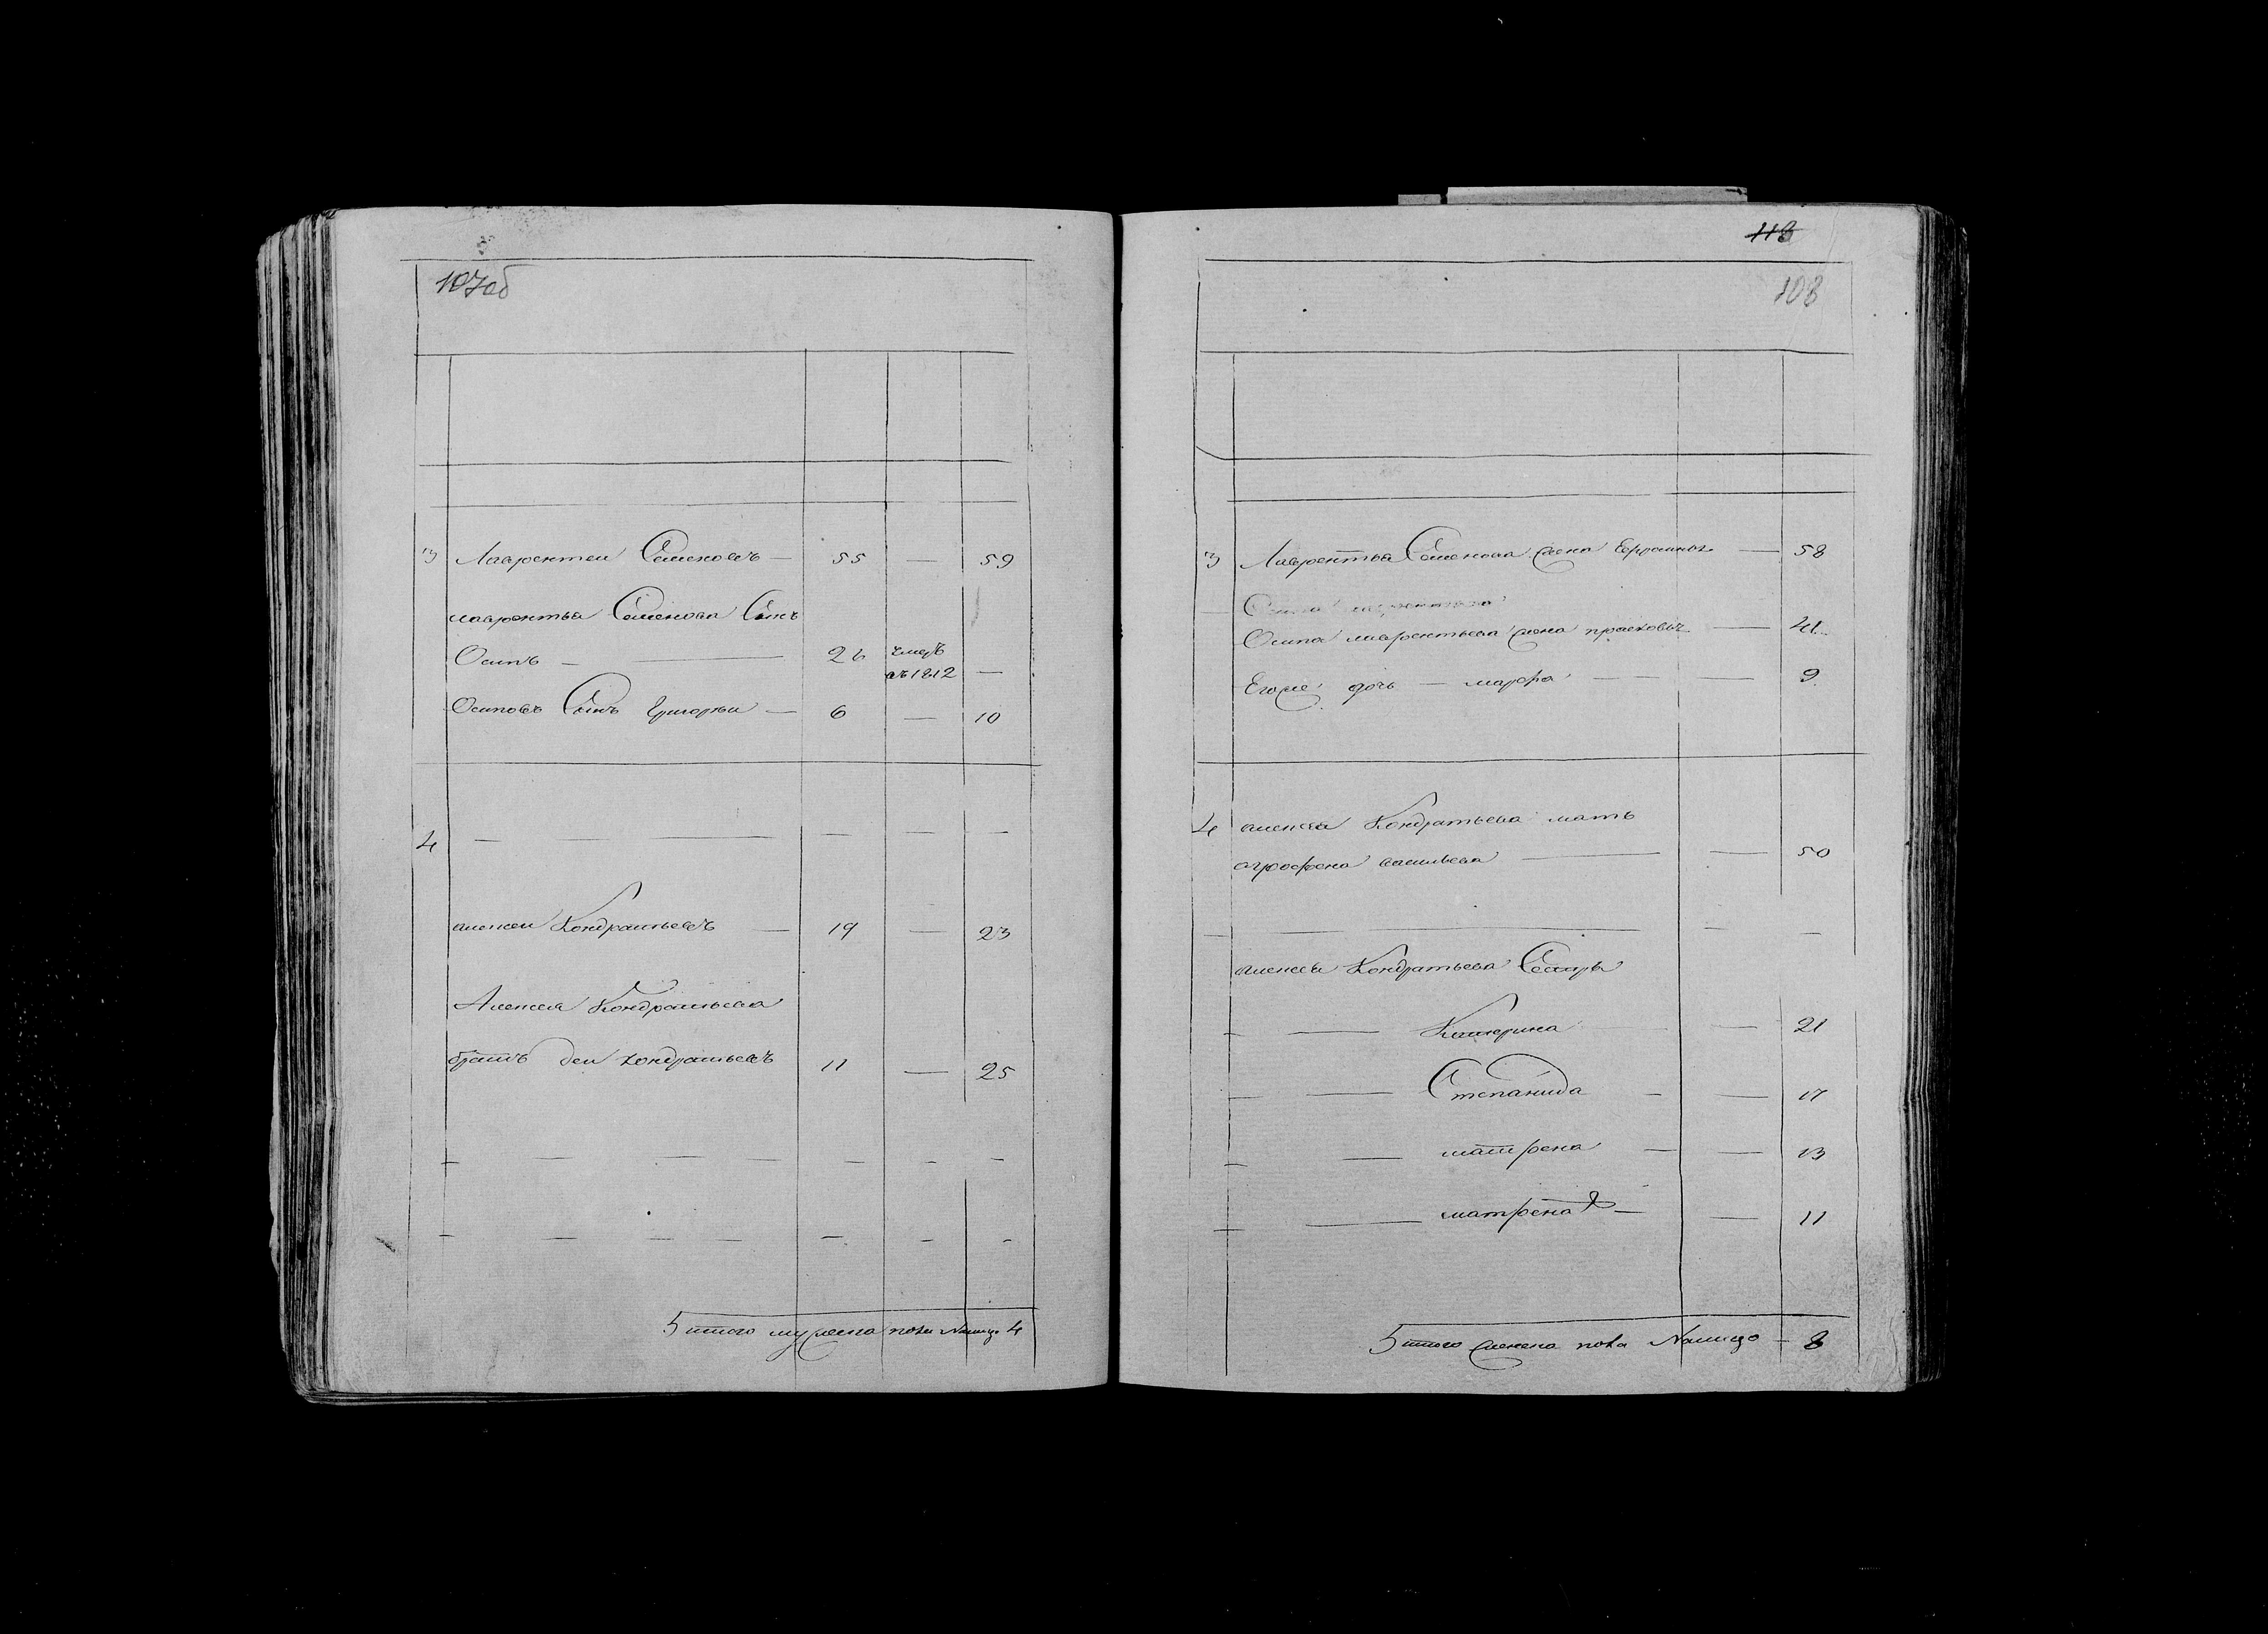 107об
3 Лаврентеи Семеновъ — 55 — 59
лаврентья Семенова Сынъ
Осипъ — 26 умеръ въ 1812 —
Осиповъ Сынъ Григорьи — 6 — 10
4 — — — — —
алексеи Кондратьевъ — 19 — 23
Алексея Кондратьева
братъ кондратьевъ 11 — 25
итого мужеска пола Налицо 4
118
108
3 Лаврентья Семенова жена — 58
Осипа лаврентьева
Осипа лаврентьева жена прасковья — 41
Егоже дочь — марфа — 9
4 алексея Кондратьева мать
агрофена васильева — 50
алексея Кондратьева Сестры
Катерина — 21
Степанида — 17
матрена — 13
матрена 2 — 11
итого женска пола Налицо — 8